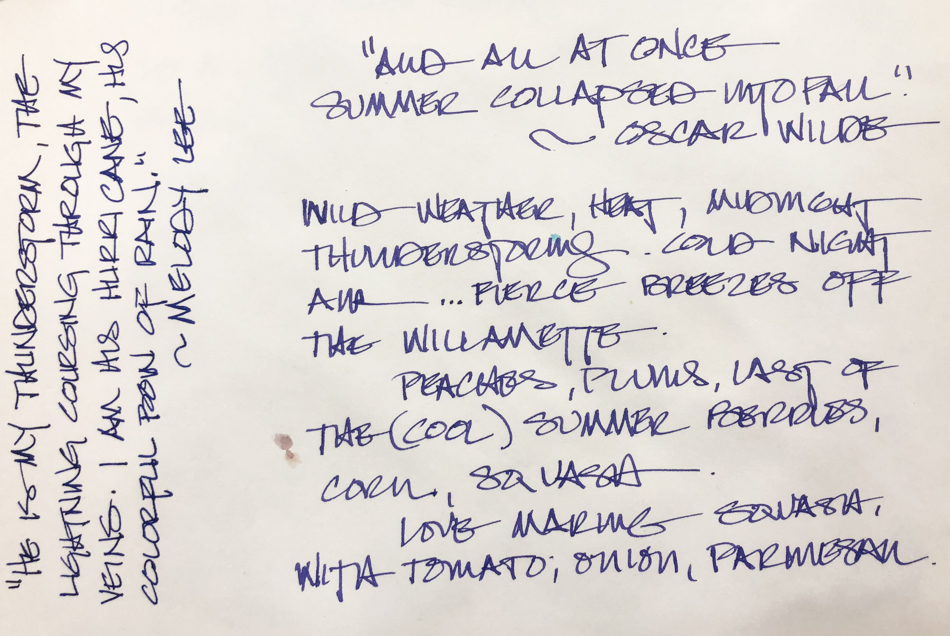 "AND ALL AT ONCE
SUMMER COLLAPSED INTO FALL".
~ OSCAR WILDE
WILD WEATHER, HEAT, MIDNIGHT
THUNDERSTORMS. COLD NIGHT
AIR ... FIERCE BREEZES OFF
THE WILLAMETTE.
PEACHES, PLUMS, LAST OF
THE (COOL) SUMMER BERRIES,
CORN, SQUASH.
LOVE MAKING SQUASH,
WITH TOMATO; ONION, PARMESAN.
"HE IS MY THUNDERSTORM, THE
LIGHTNING COURSING THROUGH MY
VEINS. I AM HIS HURRICANE, HIS
COLORFUL POEM OF RAIN."
~ MELODY LEE